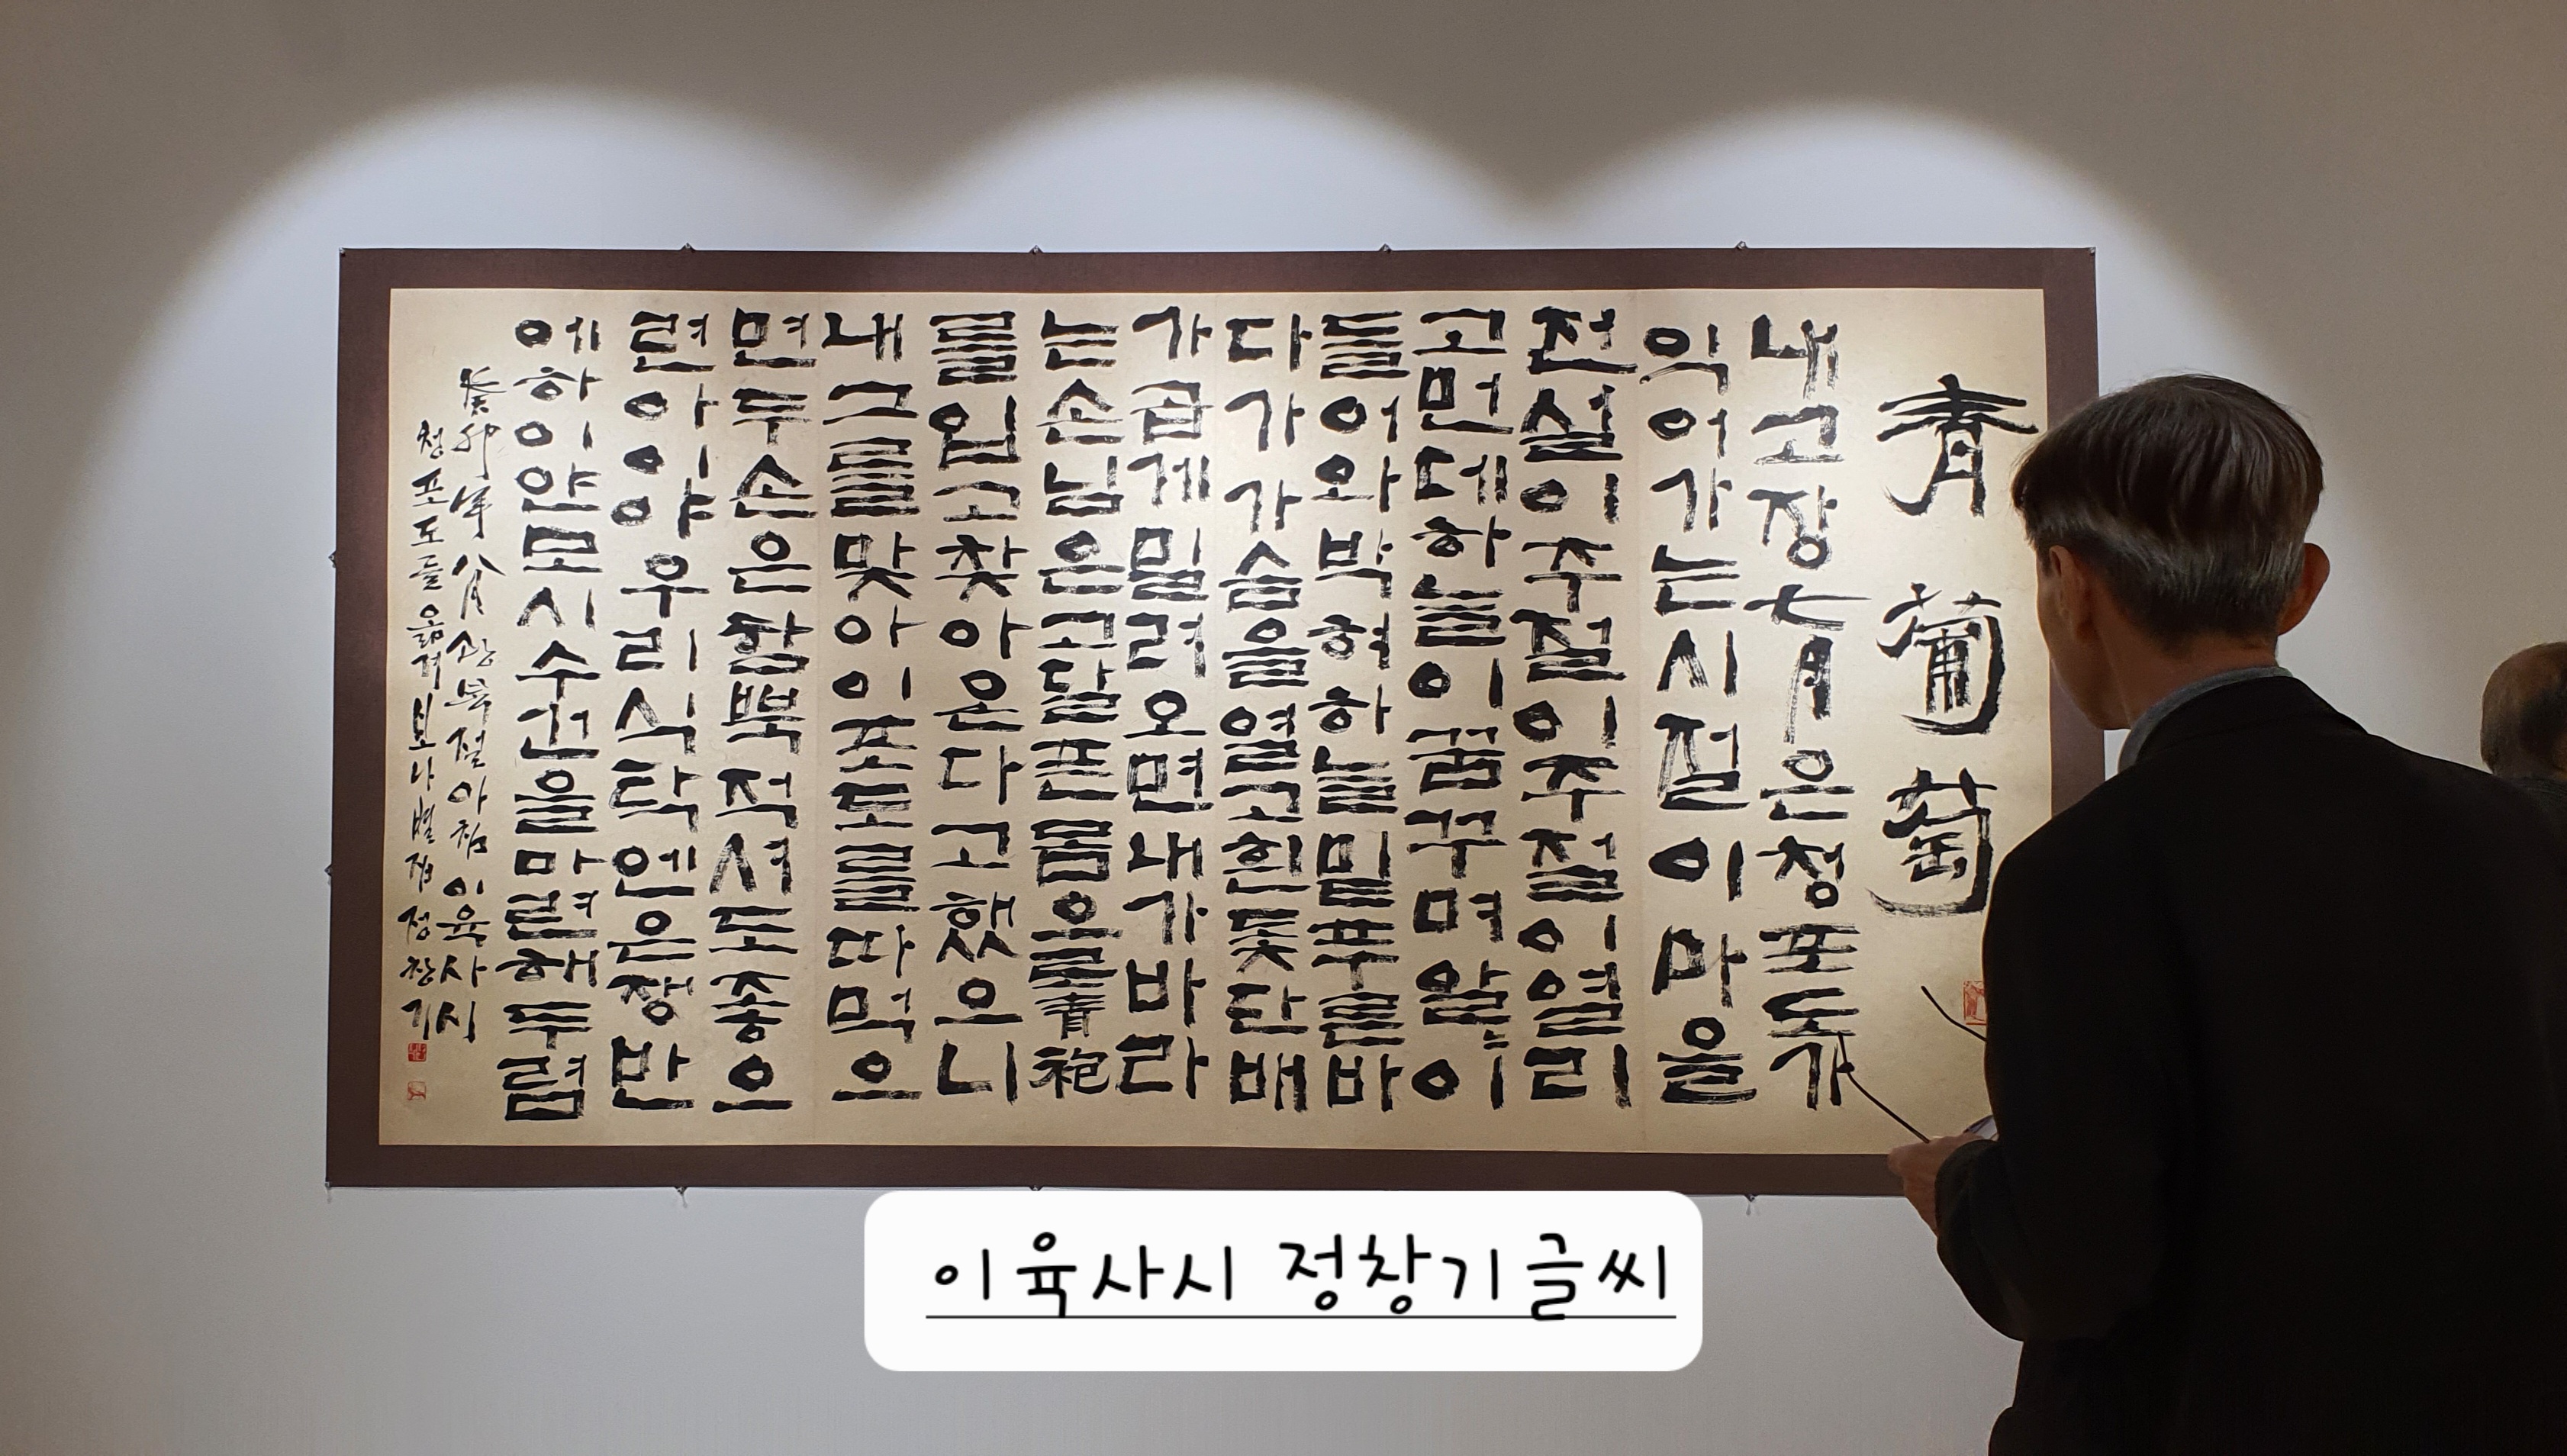 青葡萄
내고장七月은청포도가
익어가는시절이마을
전설이주절이주절이열리
고먼데하늘이꿈꾸며알〻이
들어와박혀하늘밑푸른바
다가가슴을열고흰돛단배
가곱게밀려오면내가바라
는손님은고달픈몸으로青袍
를입고찾아온다고했으니
내그를맞아이포도를따먹으
면두손은함뿍적셔도좋으
련아이야우리식탁엔은쟁반
에하이얀모시수건을마련해두렴
癸卯年八月광복절아침이육사시
청포도를옮겨 정창기
이육사시 정창기글씨